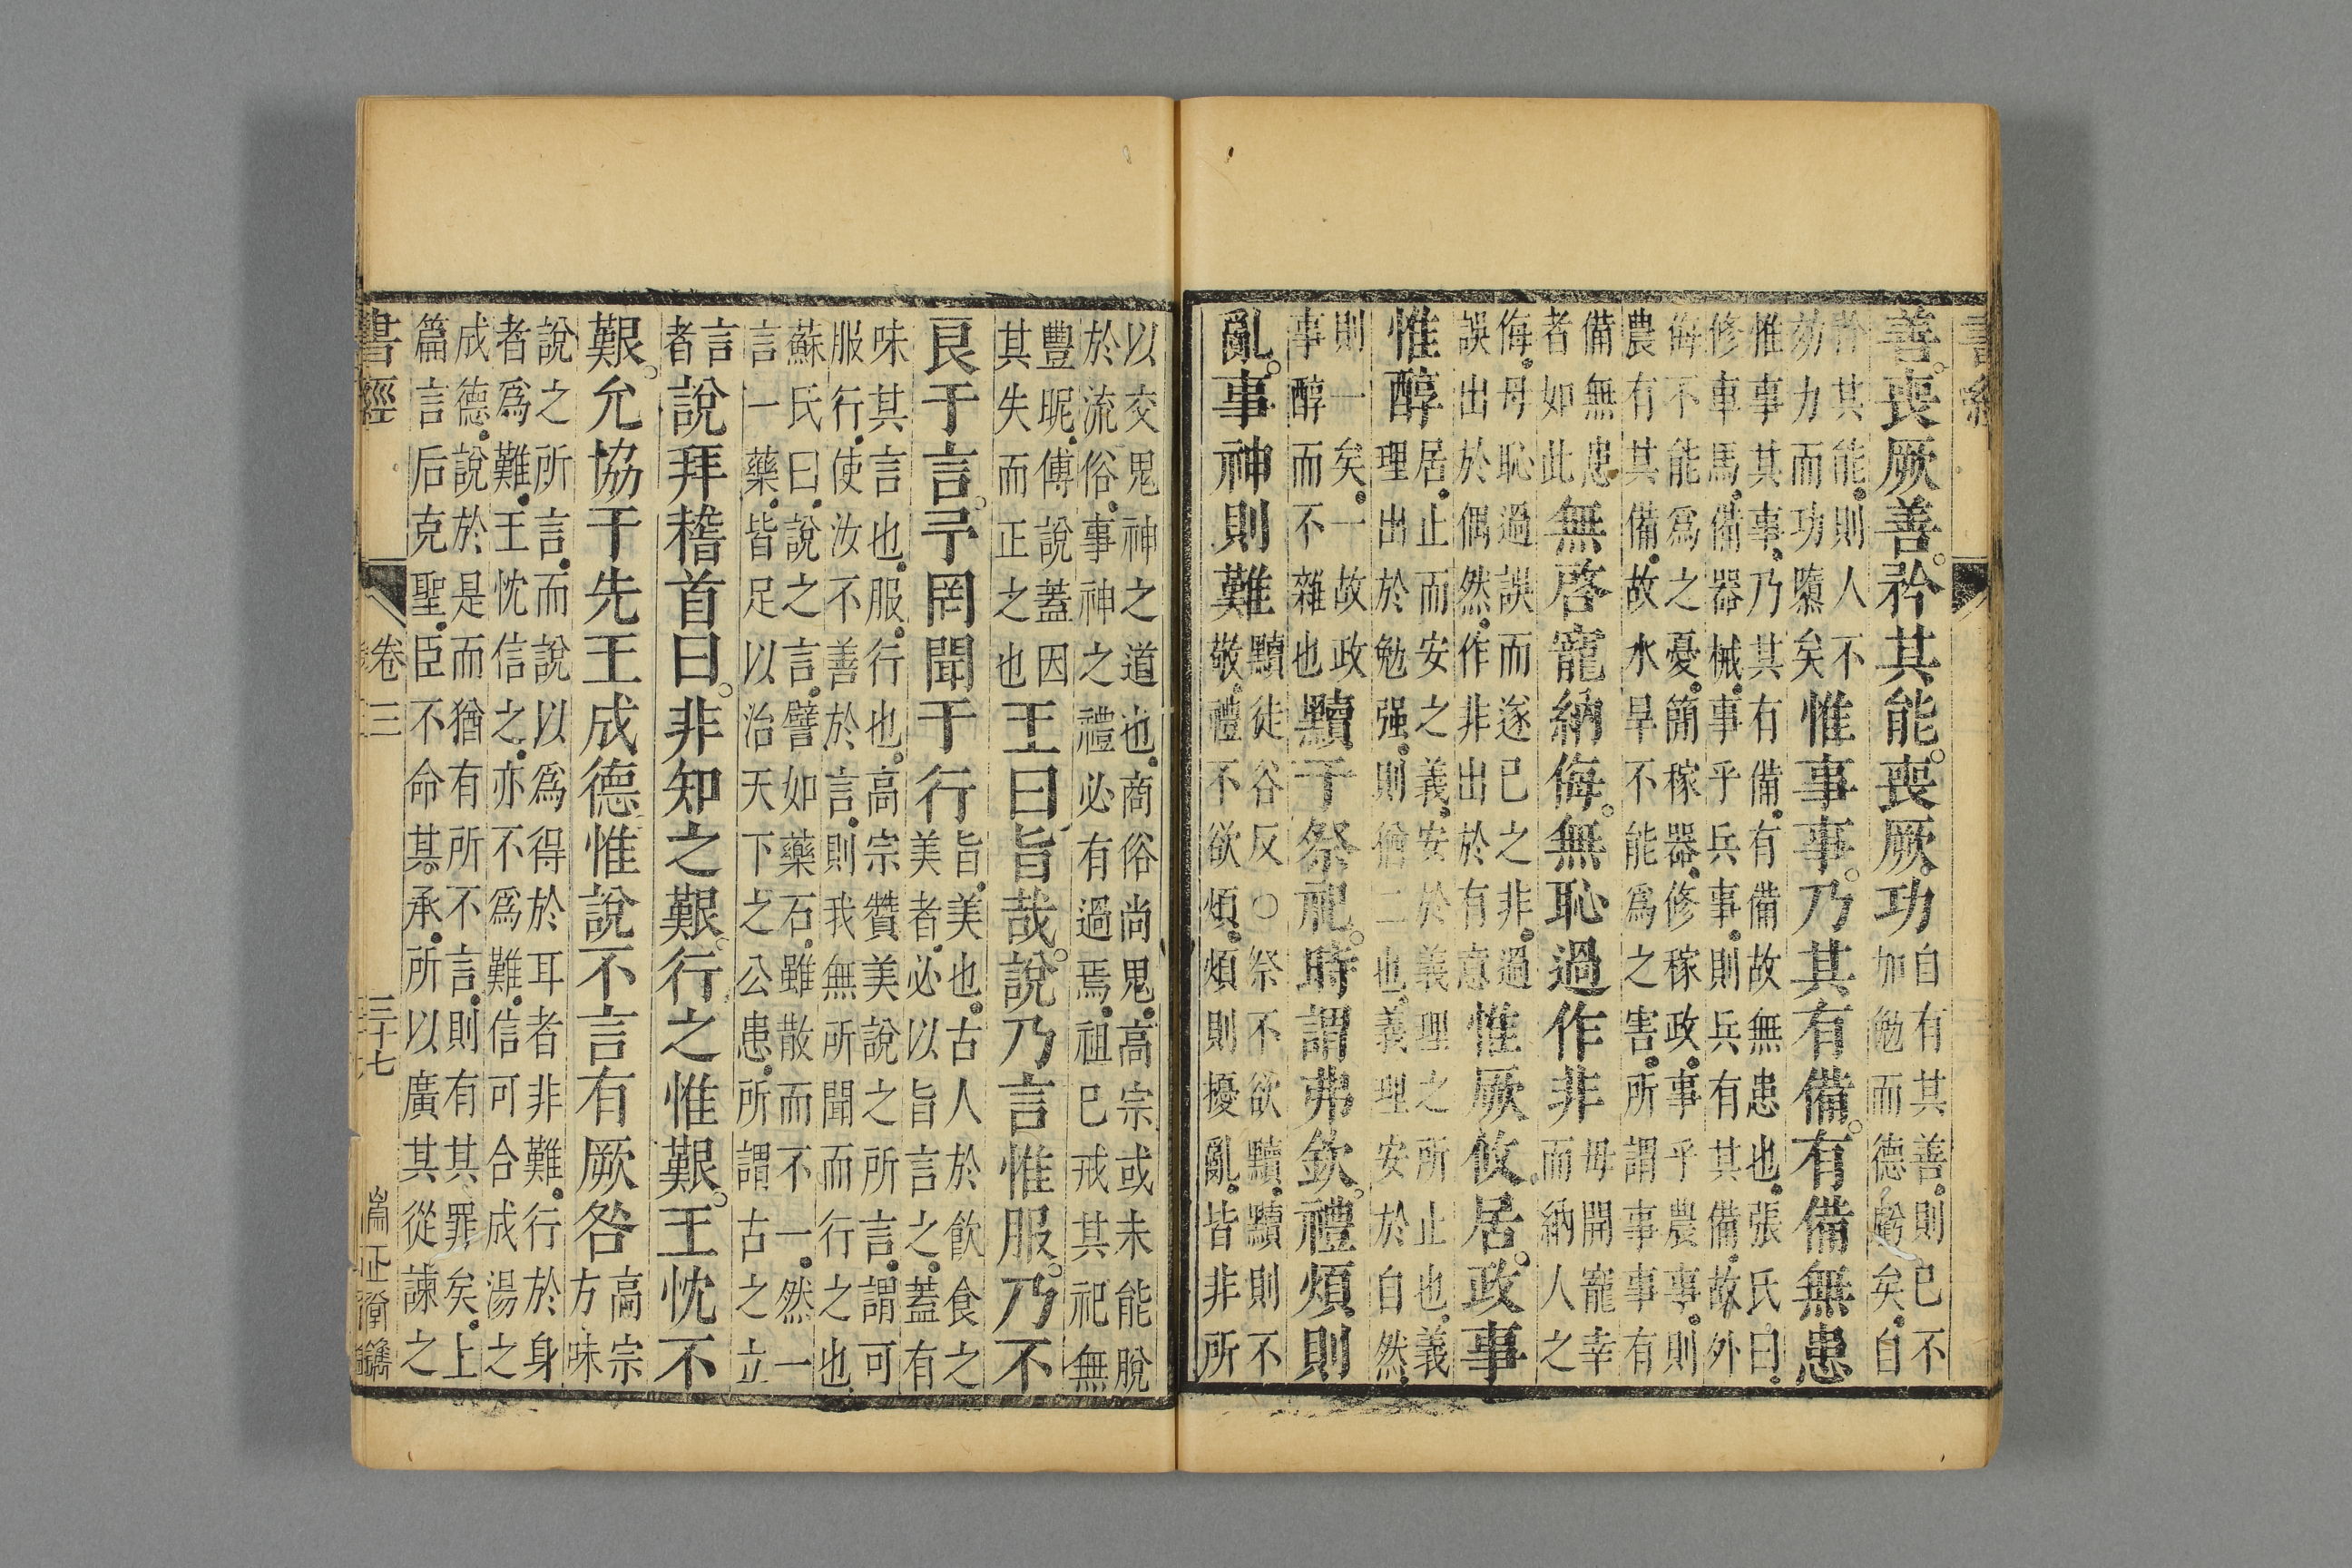 書經
善。喪厥善。矜其能。喪厥功自有其善則已不
加勉而德虧矣自
矜其能則人不
効力而功隳矣惟事事。乃其有備。有備無患
惟事其事乃其有備有備故無患也張氏曰
修車馬備器械事乎兵事則兵有其備故外
侮不能爲之憂簡稼器修稼政事乎農事則
農有其備故水旱不能爲之害所謂事事有
備無患
者如此無啓寵納侮。無恥過作非毋開寵幸
而納人之
侮毋恥過誤而遂已之非過
誤出於偶然作非出於有意惟厥攸居。政事
惟醇居止而安之義安於義理之所止也義
理出於勉强則猶二也義理安於自然
則一矣一故政
事醇而不雜也黷于祭祀。時謂弗欽。禮煩則
亂。事神則難黷徒谷反○祭不欲黷黷則不
敬禮不欲煩煩則擾亂皆非所
以交鬼神之道也商俗尚鬼高宗或未能脫
於流俗事神之禮必有過焉祖已戒其祀無
豐昵傅說蓋因
其失而正之也王曰旨哉。說乃言惟服。乃不
良于言。予罔聞于行旨美也古人於飲食之
美者必以旨言之蓋有
味其言也服行也高宗贊美說之所言謂可
服行使汝不善於言則我無所聞而行之也
蘇氏曰說之言譬如藥石雖散而不一然一
言一藥皆足以治天下之公患所謂古之立
言
者說拜稽首曰。非知之艱。行之惟艱。王忱不
艱。允協于先王成德惟說不言有厥咎高宗
方味
說之所言而說以爲得於耳者非難行於身
者爲難王忱信之亦不爲難信可合成湯之
成德說於是而猶有所不言則有其罪矣上
篇言后克聖臣不命其承所以廣其從諫之
書經
卷三
三十七
崇正堂鐫